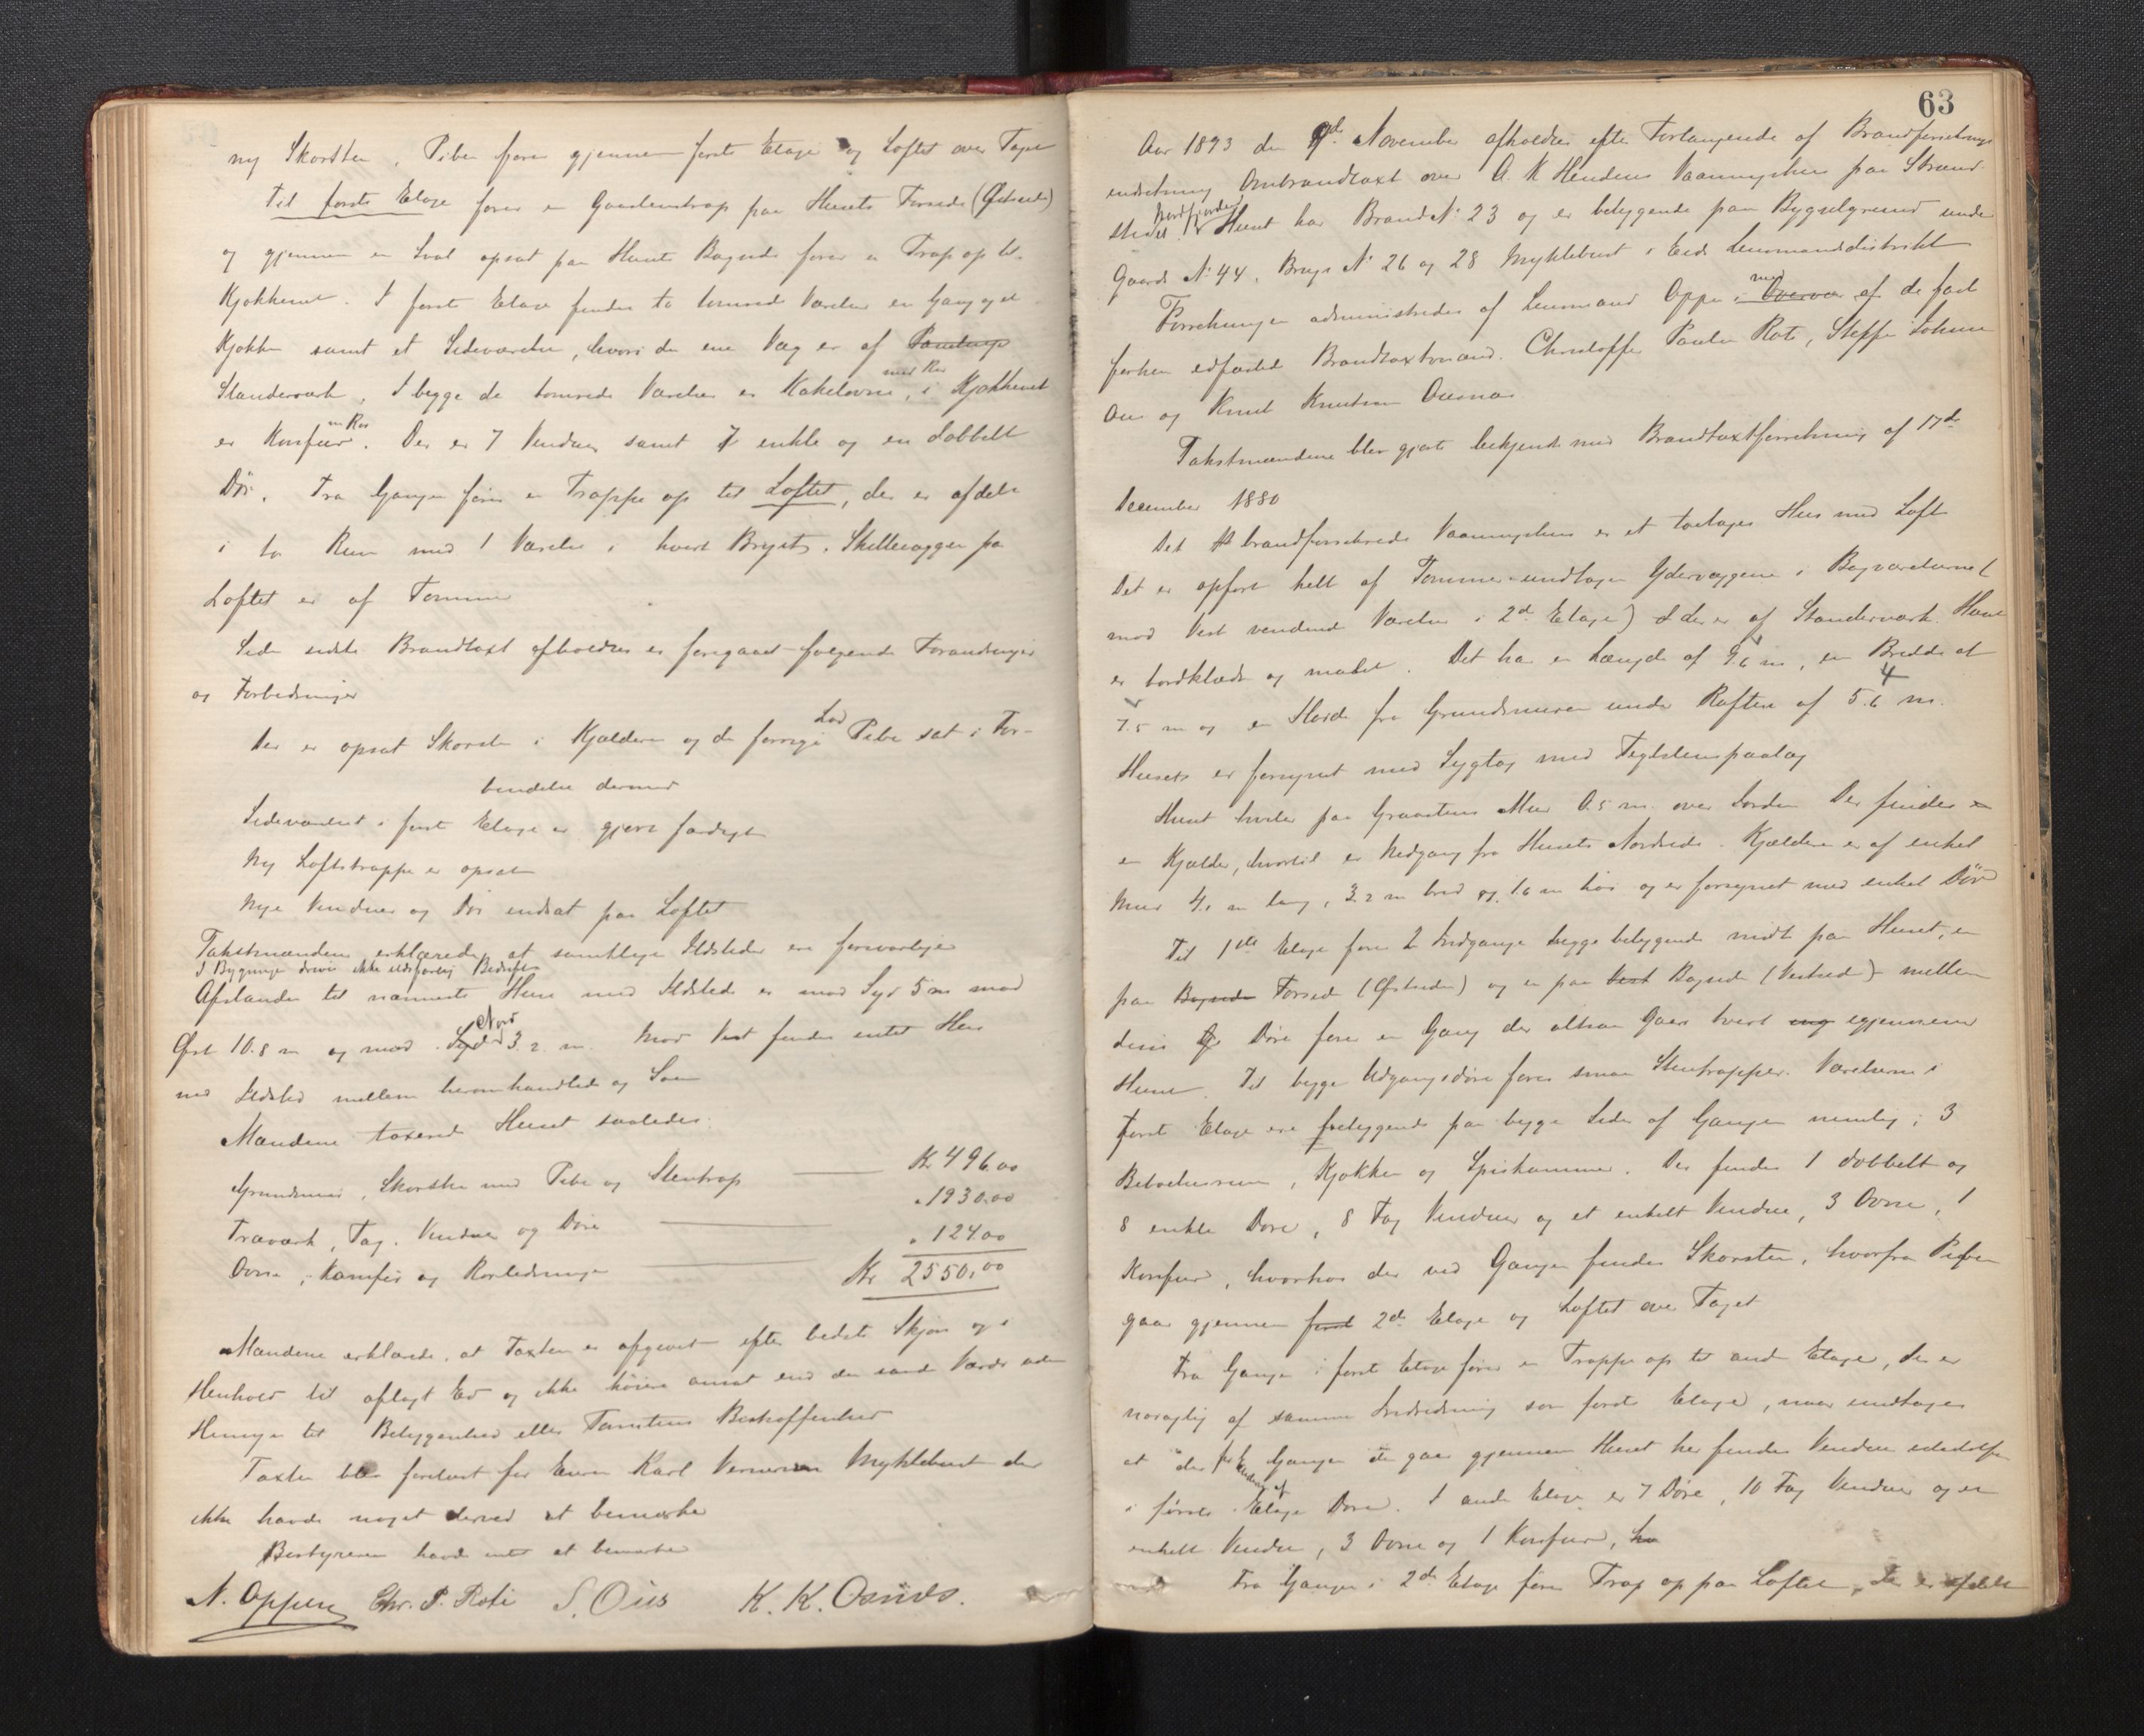 ny Skorsten, Pibe fører gjennem første Etage og Loftet over Taget
Til første Etage fører en Graastenstrap paa Husets Forside (Østside)
og gjennem en Sval opsat paa Husets Bagside fører en Trap op til
Kjøkkenet. I første Etage findes to tømrede Værelser en Gang og et
Kjøkken samt et Sideværelse, hvori den ene Væg er af
Standerværk. I begge de tømrede Værelser er Kakelovne med Rør, i Kjøkkenet
er Komfur m Rør. Der er 7 Vinduer samt 7 enkle og en dobbelt
Dør. Fra Gangen fører en Trappe op til Loftet, der er afdelt
i to Rum med 1 Værelse i hvert Bryst. Skillevægger paa
Loftet er af Tømmer
Siden sidste Brandtaxt afholdtes er foregaaet følgende Forandringer
og Forbedringer
Der er opsat Skorsten i Kjælderen og den forrige Lod Pibe sat i For-
bindelse dermed
Sideværelset i første Etage er gjort færdigt
Ny Loftstrappe er opsat
Nye Vinduer og Dør indsat paa Loftet
Takstmændene erklærede, at samtlige Ildsteder ere forsvarlige
I Bygningen drives ikke ildsfarlig Bedrift
Afstanden til nærmeste Huse med Ildsted er mod Syd 5 m mod
Øst 10.8 m og mod Syd Nord 3.2 m. Mod Vest findes intet Hus
med Ildsted mellem heromhandlede og Søen
Mændene taxered Huset saaledes:
Grundmur, Skorsten med Pibe og Stentrap Kr 496.00
Træværk, Tag, Vinduer og Døre " 1930.00
Ovne, Komfur og Rørledninger " 124.00
Kr 2550.00
Mændene erklærede, at Taxten er afgivet efter bedste Skjøn og i
Henhold til aflagt Ed og ikke høiere ansat end den sande Værdi uden
Hensyn til Beliggenhed eller Tomtens Beskaffenhed
Taxten blev forelæst for Eieren Karl Mykklebust der
ikke havde noget derved at bemærke
Bestyreren havde intet at bemærke
N. Oppen Chr. P. Roti S. Ous K. K. Osnes.
63
Aar 1893 den 9de November afholdtes efter Forlangende af Brandforsikrings
indretning Ombrandtaxt over A. K Hendens Vaaningshus paa Strand
stedet Nordfjordeid. Huset har Brand No 23 og er beliggende paa Bygselgrund under
Gaards No 44, Brugs No 26 og 28 Myklebust i Eids Lensmandsdistrikt
Forretningen administredes af Lensmand Oppen i Overvær af med de fast
forhen edfæstede Brandtaxtmænd. Christoffer Paulsen Roti, Steffen
Ous og Knut Knutsen Osnes
Takstmændene blev gjort bekjendt med Brandtaxtforretning af 17de
December 1880
Det brandforsikrede Vaaningshus er et toetages Hus med Loft
Det er opført helt af Tømmer undtagen Ydervæggene i Bagværelserne (
mod Vest vendende Værelser i 2den Etage) der er af Standerværk. Huset
er bordklædt og malet. Det har en Længde af 9.6 m, en Bredde af
7.5 m og en Høide fra Grundmuren under Raftene af 5.6 4 m.
Huset er forsynet med Sygtag med Teglstenspaalæg
Huset hviler paa Graastens Mur 0.5 m. over Jorden Der findes
en Kjælder, hvortil er Nedgang fra Husets Nordside. Kjælderen er af enkel
Mur 4.1 m lang, 3.2 m bred og 1.6 m høi og er forsynet med enkel Dør
Til 1ste Etage fører 2 Indgange begge beliggende midt paa Huset, en
paa Bagside Forside (Østsiden) og en paa Vest Bagside (Vestside) mellem
disse Døre fører en Gang der altsaa gaar tvert igjennem
Huset. Til begge Udgangsdøre fører smaa Stentrapper. Værelserne i
første Etage ere beliggende paa begge Sider af Gangen nemlig: 3
Beboelsesrum, Kjøkken og Spiskammer. Der findes 1 dobbelt og
8 enkle Døre, 8 Fag Vinduer og et enkelt Vindue, 3 Ovne, 1
Komfur, hvorhos der ved Gangen findes Skorsten, hvorfra Piben
gaar gjennem først 2den Etage og Loftet over Taget
Fra Gangen i første Etage fører en Trappe op til anden Etage, der er
nøiagtig af samme Indredning som første Etage, naar undtages
at der Gangen gaar gjennem Huset her findes Vindue istedetfor
i første Etage Døre. I anden Etage er 7 Døre, 10 Fag Vinduer og en
enkelt Vindue, 3 Ovne og 1 Komfur,
Fra Gangen i 2den Etage fører Trap op paa Loftet, der er afdelt